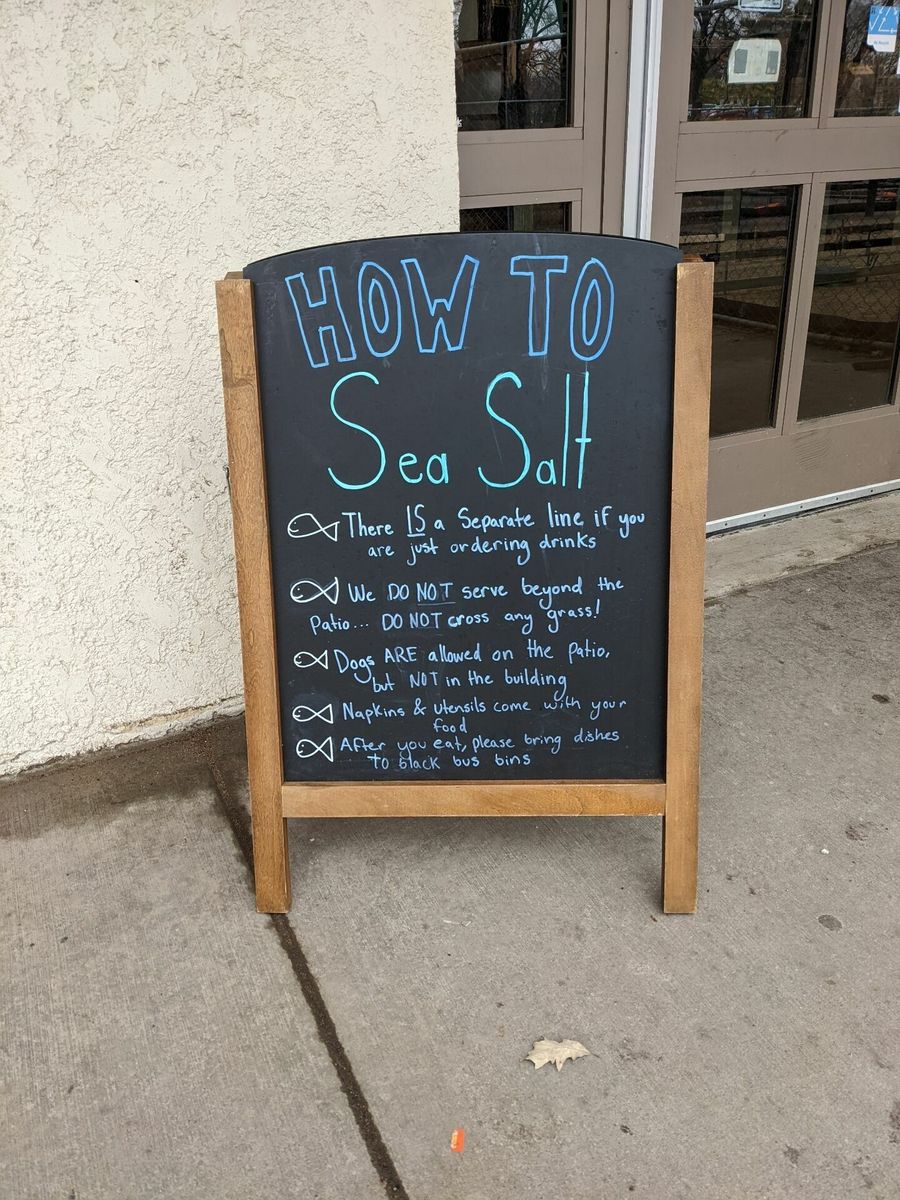 HOW TO
Sea Salt
There IS a Separate line if you
are just ordering drinks
We DO NOT serve beyond the
Patio... DO NOT cross any grass!
Dogs ARE allowed on the patio,
but NOT in the building
Napkins & utensils come with your
food
After you eat, please bring dishes
to black bus bins